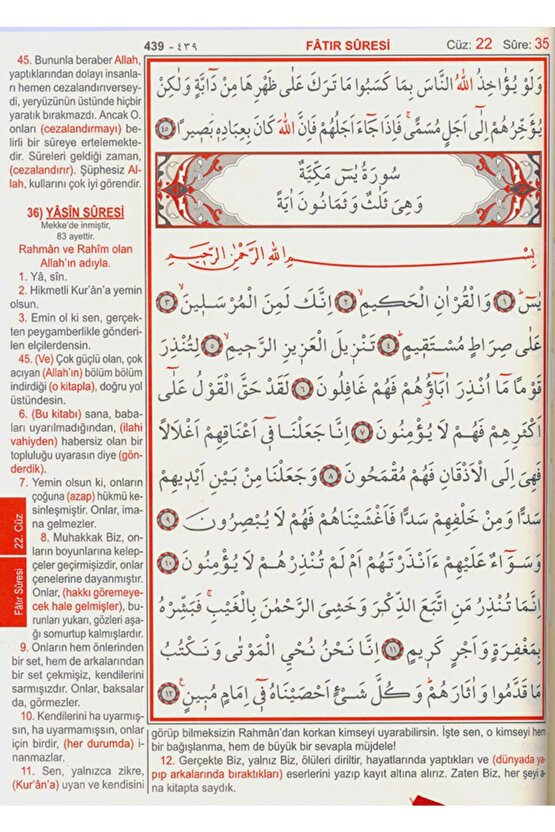 439 - ٤٣٩
FÂTIR SÛRESİ
Cüz: 22 Sûre: 35
45. Bununla beraber Allah,
yaptıklarından dolayı insanla-
rı hemen cezalandırıversey-
di, yeryüzünün üstünde hiçbir
yaratık bırakmazdı. Ancak O.
onları (cezalandırmayı) be-
lirli bir süreye ertelemekte-
dir. Süreleri geldiği zaman,
(cezalandırır). Şüphesiz Al-
lah, kullarını çok iyi görendir.
36) YÂSÎN SÛRESİ
Mekke'de inmiştir,
83 ayettir.
Rahmân ve Rahîm olan
Allah'ın adıyla.
1. Yâ, sîn.
2. Hikmetli Kur'ân'a yemin
olsun.
3. Emin ol ki sen, gerçek-
ten peygamberlikle gönderi-
len elçilerdensin.
45. (Ve) Çok güçlü olan, çok
acıyan (Allah'ın) bölüm bölüm
indirdiği (o kitapla), doğru yol
üstündesin.
6. (Bu kitabı) sana, baba-
ları uyarılmadığından, (ilahi
vahiyden) habersiz olan bir
topluluğu uyarasın diye (gön-
derdik).
7. Yemin olsun ki, onların
çoğuna (azap) hükmü ke-
sinleşmiştir. Onlar, ima-
na gelmezler.
8. Muhakkak Biz, on-
ların boyunlarına kelep-
çeler geçirmişizdir, onlar
çenelerine dayanmıştır.
Onlar, (hakkı göremeye-
cek hale gelmişler), bu-
runları yukarı, gözleri aşa-
ğı somurtup kalmışlardır.
9. Onların hem önlerinden
bir set, hem de arkalarından
bir set çekmişiz, kendilerini
sarmışızdır. Onlar, baksalar
da, görmezler.
10. Kendilerini ha uyarmış-
sın, ha uyarmamışsın, onlar
için birdir, (her durumda) i-
nanmazlar.
11. Sen, yalnızca zikre,
(Kur'ân'a) uyan ve kendisini
22. Cüz
Fâtır Sûresi
وَلَوْ يُؤَاخِذُ اللّٰهُ النَّاسَ بِمَا كَسَبُوا مَا تَرَكَ عَلٰى ظَهْرِهَا مِنْ دَٓابَّةٍ وَلٰكِنْ
يُؤَخِّرُهُمْ اِلٰٓى اَجَلٍ مُسَمًّىۚ فَاِذَا جَٓاءَ اَجَلُهُمْ فَاِنَّ اللّٰهَ كَانَ بِعِبَادِه۪ بَص۪يرًا ﴿٤٥﴾
سُورَةُ يٰسٓ مَكِّيَّةٌ
وَهِيَ ثَلٰثٌ وَثَمَانُونَ اٰيَةً
بِسْمِ اللّٰهِ الرَّحْمٰنِ الرَّح۪يمِ
يٰسٓ ﴿١﴾ وَالْقُرْاٰنِ الْحَك۪يمِ ﴿٢﴾ اِنَّكَ لَمِنَ الْمُرْسَل۪ينَ ﴿٣﴾
عَلٰى صِرَاطٍ مُسْتَق۪يمٍ ﴿٤﴾ تَنْز۪يلَ الْعَز۪يزِ الرَّح۪يمِ ﴿٥﴾ لِتُنْذِرَ
قَوْمًا مَٓا اُنْذِرَ اٰبَٓاؤُ۬هُمْ فَهُمْ غَافِلُونَ ﴿٦﴾ لَقَدْ حَقَّ الْقَوْلُ عَلٰٓى
اَكْثَرِهِمْ فَهُمْ لَا يُؤْمِنُونَ ﴿٧﴾ اِنَّا جَعَلْنَا ف۪ٓي اَعْنَاقِهِمْ اَغْلَالًا
فَهِيَ اِلَى الْاَذْقَانِ فَهُمْ مُقْمَحُونَ ﴿٨﴾ وَجَعَلْنَا مِنْ بَيْنِ اَيْد۪يهِمْ
سَدًّا وَمِنْ خَلْفِهِمْ سَدًّا فَاَغْشَيْنَاهُمْ فَهُمْ لَا يُبْصِرُونَ ﴿٩﴾
وَسَوَٓاءٌ عَلَيْهِمْ ءَاَنْذَرْتَهُمْ اَمْ لَمْ تُنْذِرْهُمْ لَا يُؤْمِنُونَ ﴿١٠﴾
اِنَّمَا تُنْذِرُ مَنِ اتَّبَعَ الذِّكْرَ وَخَشِيَ الرَّحْمٰنَ بِالْغَيْبِۚ فَبَشِّرْهُ
بِمَغْفِرَةٍ وَاَجْرٍ كَر۪يمٍ ﴿١١﴾ اِنَّا نَحْنُ نُحْيِ الْمَوْتٰى وَنَكْتُبُ
مَا قَدَّمُوا وَاٰثَارَهُمْۜ وَكُلَّ شَيْءٍ اَحْصَيْنَاهُ ف۪ٓي اِمَامٍ مُب۪ينٍ ﴿١٢﴾
görüp bilmeksizin Rahmân'dan korkan kimseyi uyarabilirsin. İşte sen, o kimseyi hem
bir bağışlanma, hem de büyük bir sevapla müjdele!
12. Gerçekte Biz, yalnız Biz, ölüleri diriltir, hayatlarında yaptıkları ve (dünyada ya-
pıp arkalarında bıraktıkları) eserlerini yazıp kayıt altına alırız. Zaten Biz, her şeyi a-
na kitapta saydık.